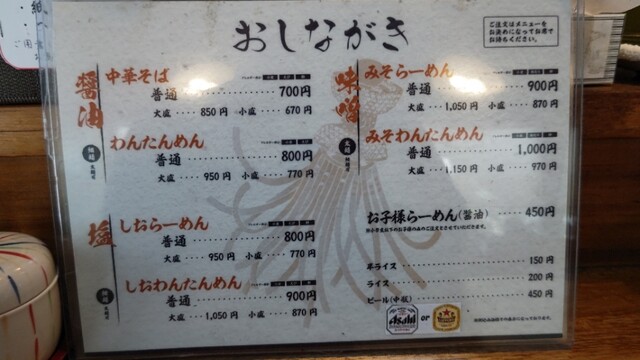 おしながき
ご注文はメニューを
お決めになってお席で
お待ちください。
醤油
中華そば
普通 ………… 700円
大盛 …… 850円 小盛 …… 670円
わんたんめん
普通 ………… 800円
大盛 …… 950円 小盛 …… 770円
塩
しおらーめん
普通 ………… 800円
大盛 …… 950円 小盛 …… 770円
しおわんたんめん
普通 ………… 900円
大盛 …… 1,050円 小盛 …… 870円
味噌
みそらーめん
普通 ………… 900円
大盛 …… 1,050円 小盛 …… 870円
みそわんたんめん
普通 ………… 1,000円
大盛 …… 1,150円 小盛 …… 970円
お子様らーめん(醤油) …… 450円
半ライス ………… 150円
ライス ………… 200円
ビール(中瓶) ………… 450円
Asahi or